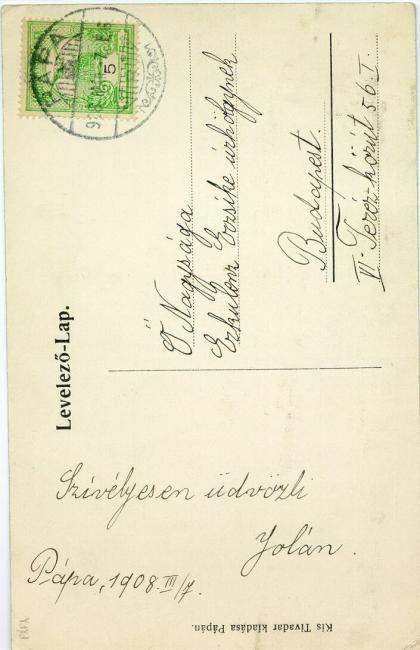 PÁPA
5
Levelező-Lap.
Ő Nagysága
Erzsike úrhölgynek
Budapest.
VI. Teréz-körút 56 I.
Szívélyesen üdvözli
Jolán.
Pápa, 1908. III/7.
Kis Tivadar kiadása Pápán.
PÁPA